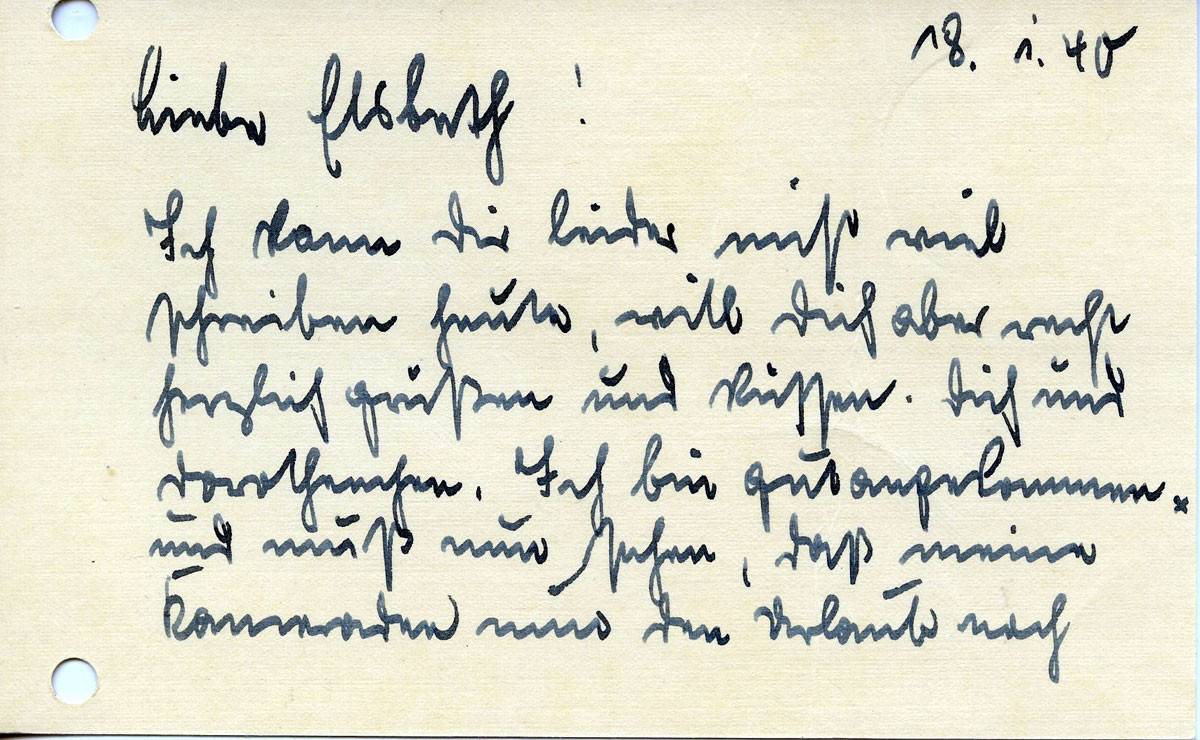 18. 1. 40
Liebe Elsbeth!
Ich kann Dir leider nicht viel
schreiben heute, will Dich aber recht
herzlich grüßen und küssen. Dich und
Dorothenchen. Ich bin gut angekommen.
und muß nun sehen, daß meine
Kameraden nun den Urlaub noch